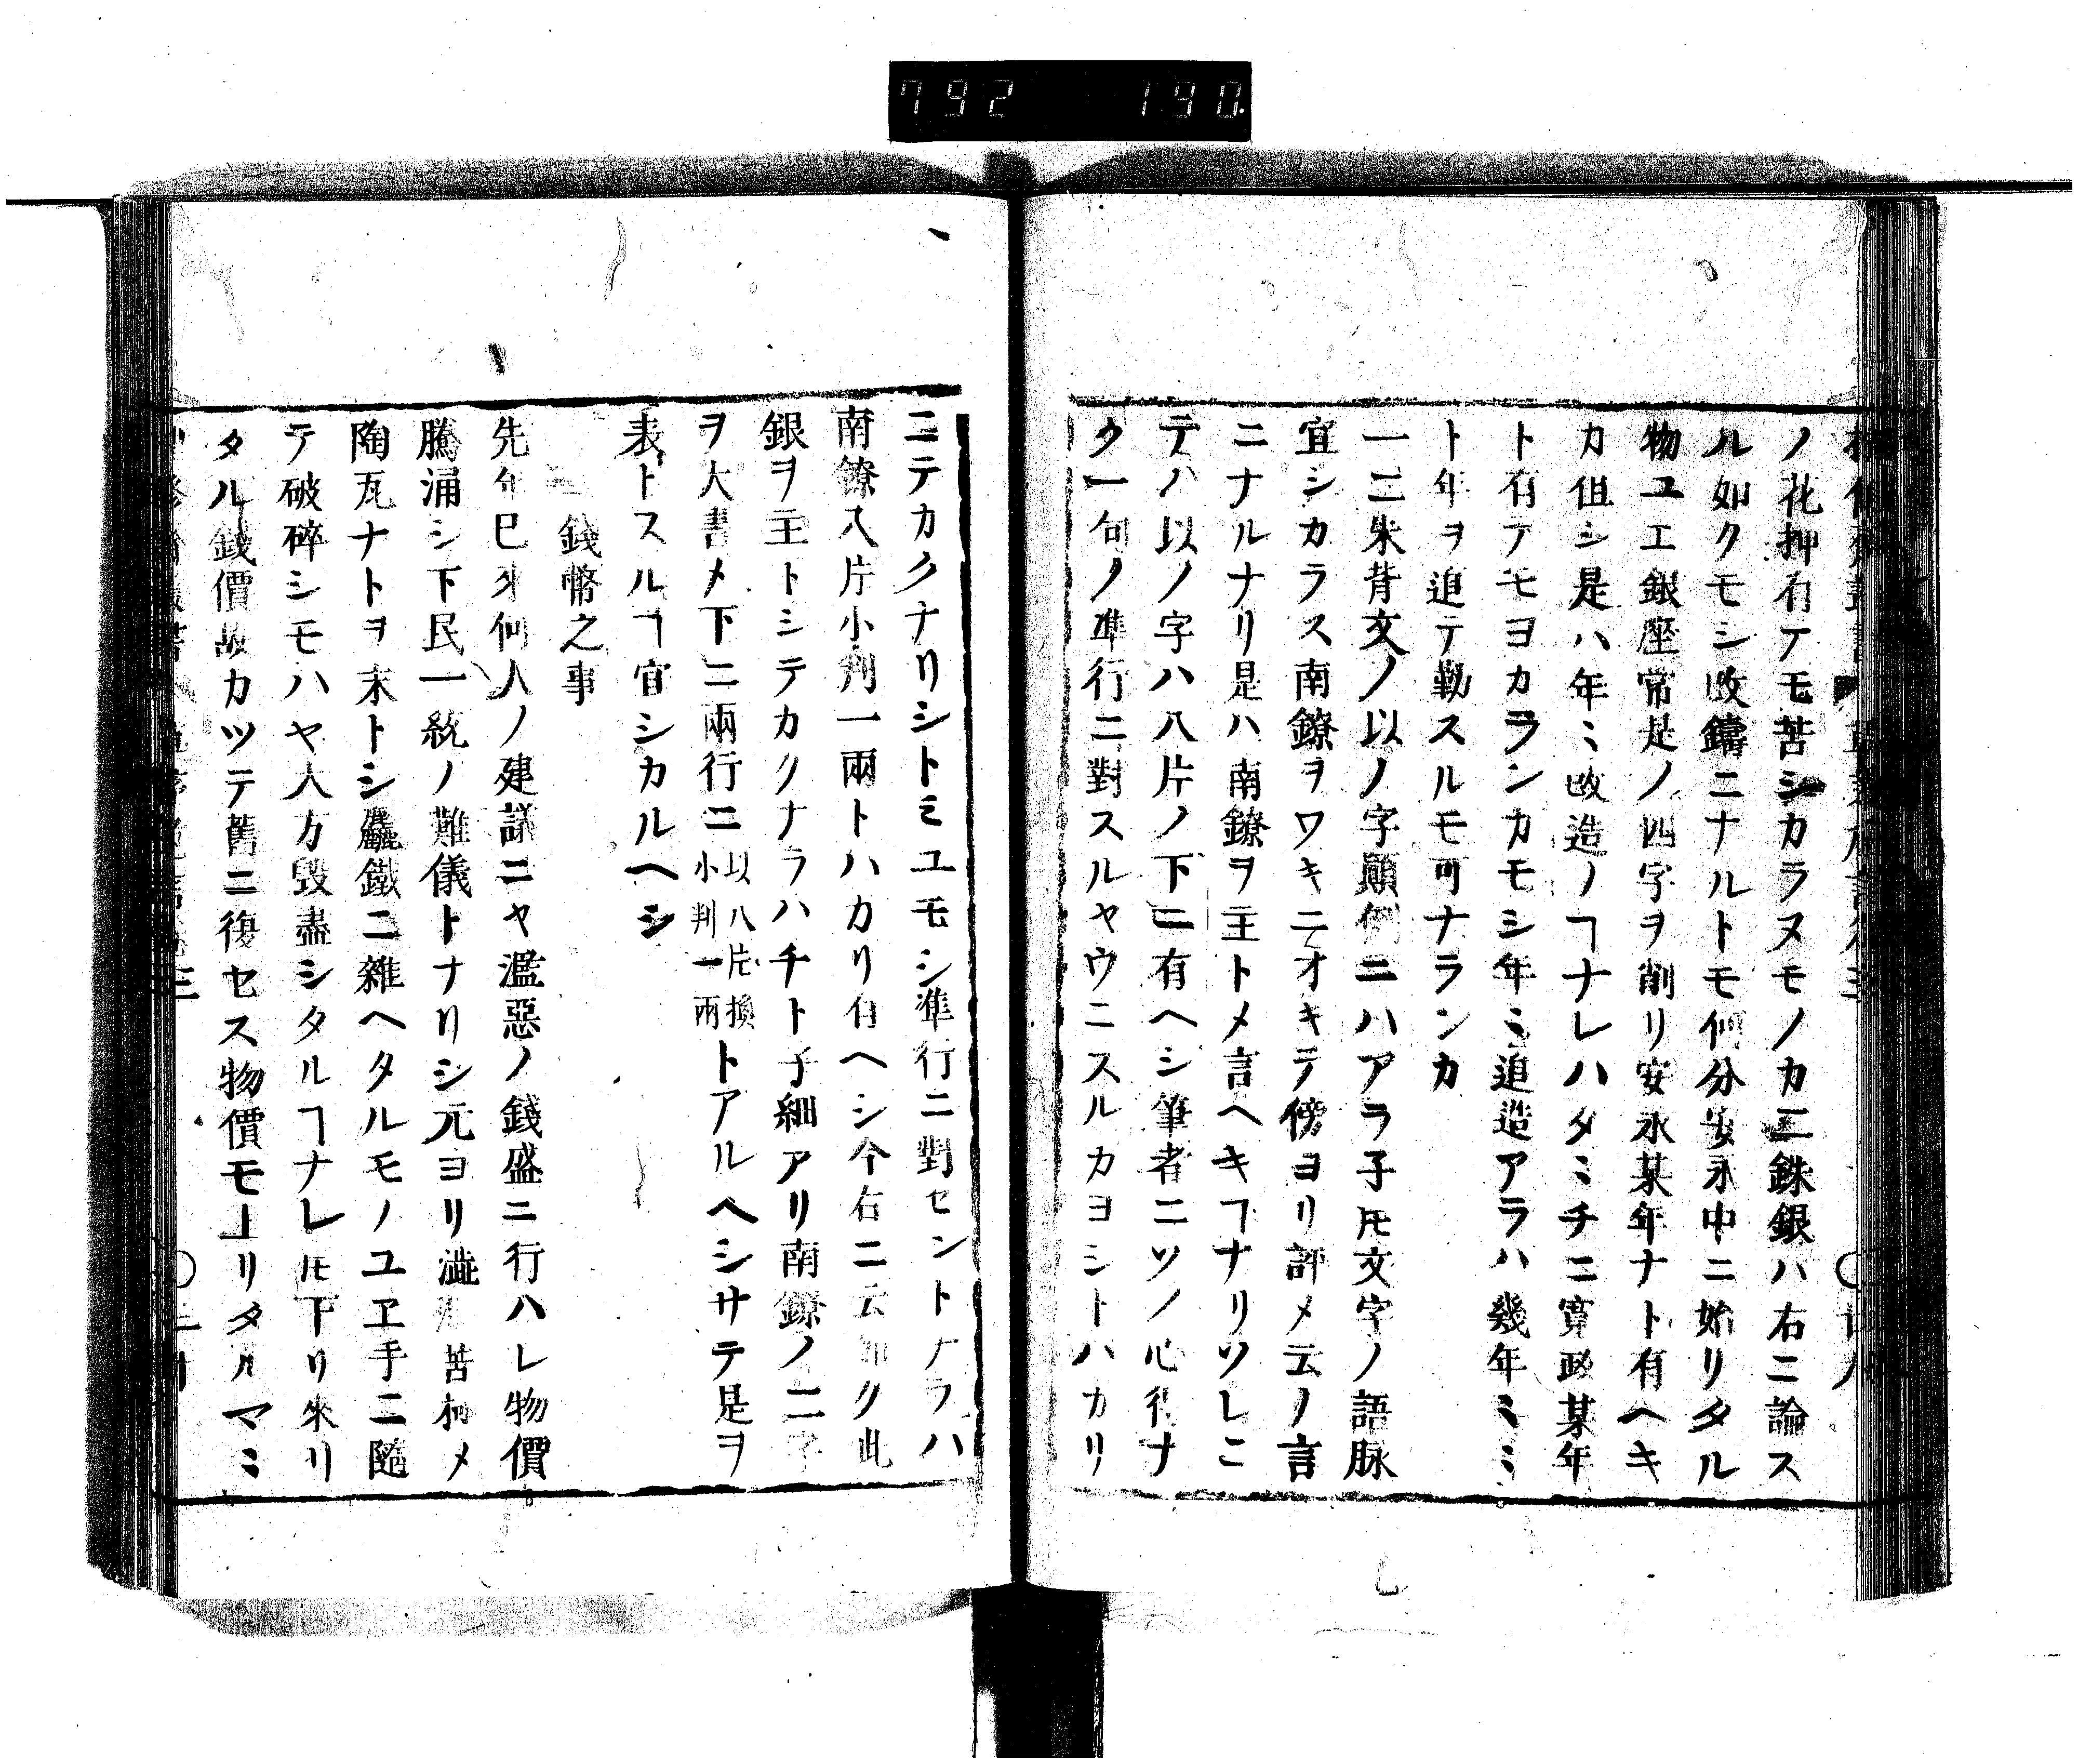 792 190
ノ花押有テモ苦シカラヌモノカ二銖銀ハ右ニ論ス
ル如クモシ改鑄ニナルトモ何分安永中ニ始リタル
物ユエ銀座常是ノ四字ヲ削リ安永某年ナト有ヘキ
カ但シ是ハ年ミ改造ノヿナレハタミチニ寛政某年
ト有テモヨカランカモシ年ミ追造アラハ幾年ミミ
ト年ヲ追テ勒スルモ可ナランカ
一二朱背文ノ以ノ字顛倒ニハアラ子𪜈文字ノ語脉
宜シカラス南鐐ヲワキニオキテ傍ヨリ評メ云ノ言
ニナルナリ是ハ南鐐ヲ主トメ言ヘキヿナリソレニ
テハ以ノ字ハ八片ノ下ニ有ヘシ筆者ニソノ心得ナ
ク一句ノ準行ニ對スルヤウニスルカヨシトハカリ
ニテカクナリシトミユモシ準行ニ對セントナラハ
南鐐八片小判一兩トハカリ有ヘシ今右ニ云如ク此
銀ヲ主トシテカクナラハチト子細アリ南鐐ノ二字
ヲ大書メ下ニ兩行ニ以八片換小判一兩トアルヘシサテ是ヲ
表トスルヿ宜シカルヘシ
錢幣之事
先年已來何人ノ建議ニヤ濫惡ノ錢盛ニ行ハレ物價
騰涌シ下民一統ノ難儀トナリシ元ヨリ澁苦枘メ
陶瓦ナトヲ末トシ麤鐵ニ雜ヘタルモノユヱ手ニ隨
テ破碎シモハヤ大方毀盡シタルヿナレ𪜈下リ來リ
タル錢價故カツテ舊ニ復セス物價モ上リタルマミ